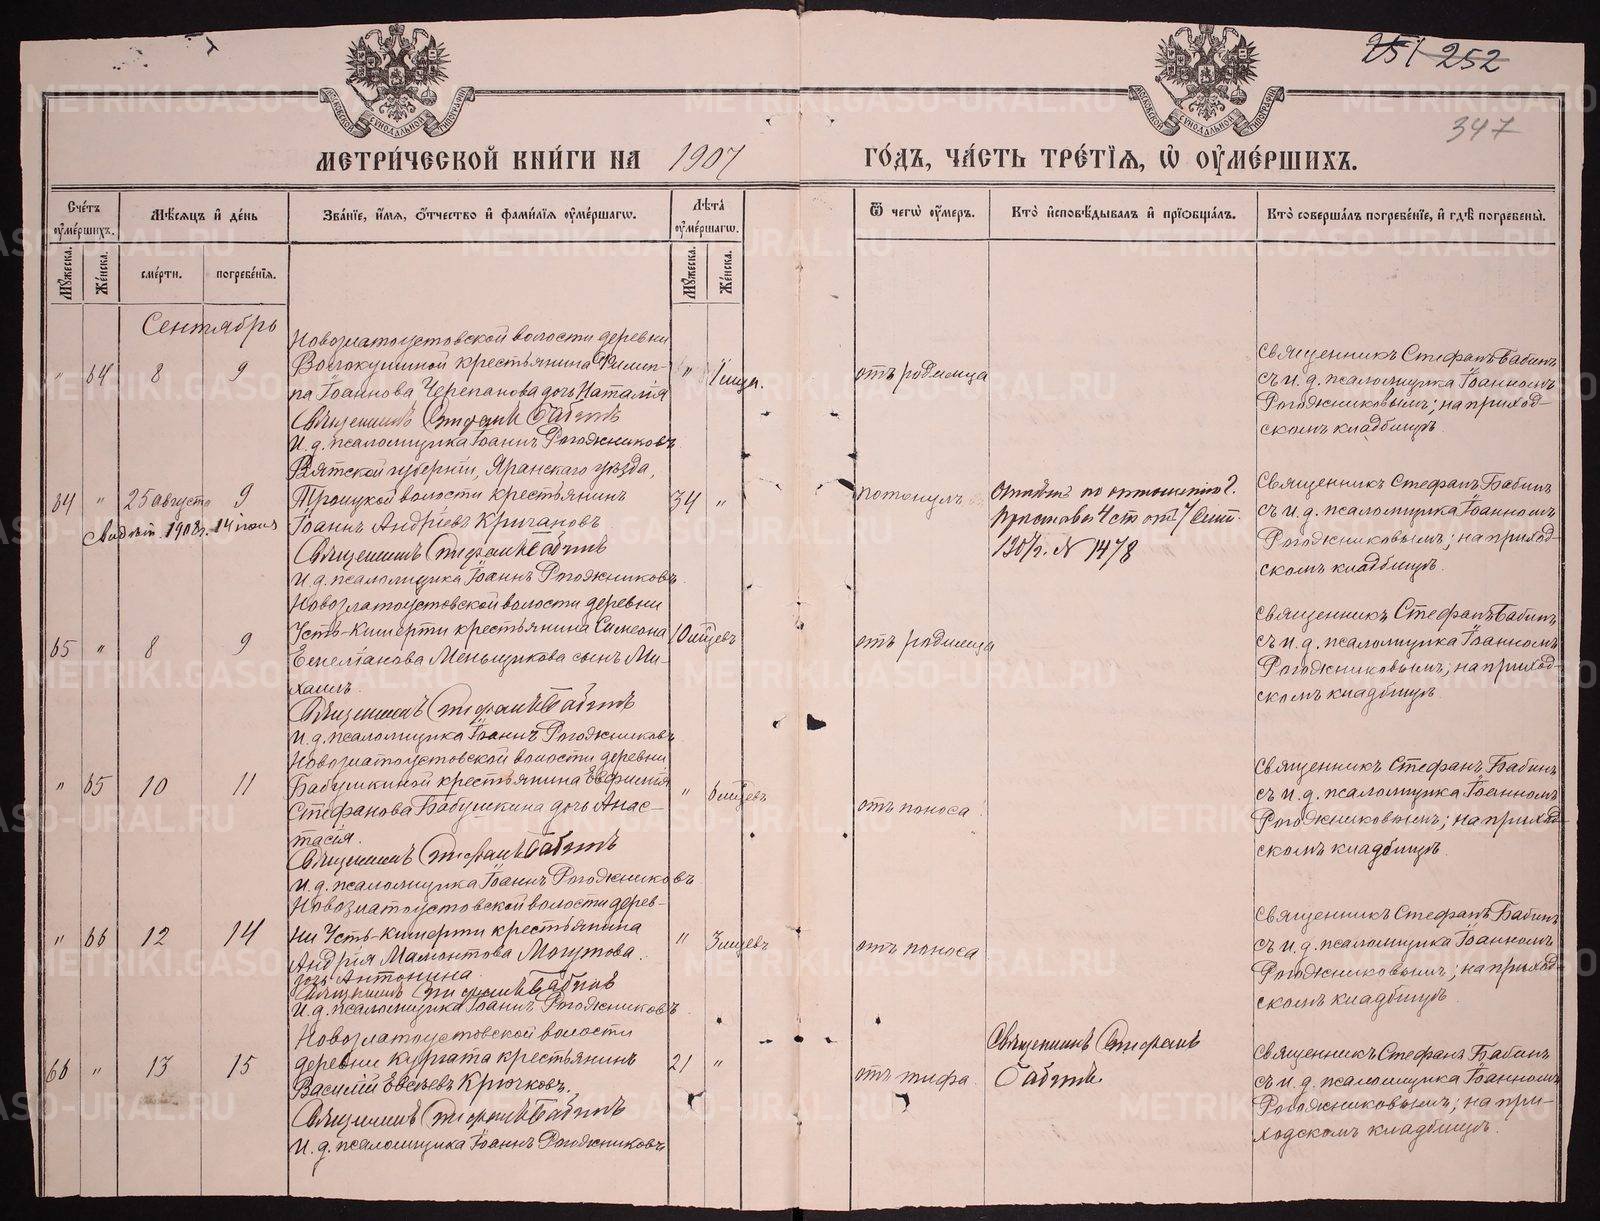 251 252
347
МОСКОВСКОЙ СѴНОДАЛЬНОЙ ТИПОГРАФІИ
МОСКОВСКОЙ СѴНОДАЛЬНОЙ ТИПОГРАФІИ
МЕТРИ́ЧЕСКОЙ КНИ́ГИ НА 1907 ГО́ДЪ, ЧА́СТЬ ТРЕ́ТІЯ, Ѡ҆ ОУ҆МЕ́РШИХЪ.
Сче́тъ оу҆ме́ршихъ.
Мѣ́сяцъ и҆ де́нь
Зва́нїе, и҆́мя, ѻ҆́тчество и҆ фами́лїя оу҆ме́ршагѡ.
Лѣ́та оу҆ме́ршагѡ.
Ѿ чегѡ̀ оу҆́меръ.
Кто̀ и҆сповѣ́дывалъ и҆ прїѡбща́лъ.
Кто̀ соверша́лъ погребе́нїе, и҆ гдѣ̀ погребены̀.
Му́жеска.
Же́нска.
сме́рти.
погребе́нїя.
Му́жеска.
Же́нска.
Сентябрь
" 64 8 9
Новозлатоустовской волости деревни
Волокушиной крестьянина Филип-
па Іоаннова Черепанова дочь Наталія
Священникъ Стефанъ Бабинъ
И. д. псаломщика Іоаннъ Рогожниковъ
"
отъ родимца
Священникъ Стефанъ Бабинъ
съ и. д. псаломщика Іоанномъ
Рогожниковымъ; на приход-
скомъ кладбищѣ.
64 " 25 августа 9
1908 г. 14 іюня
Вятской губерніи, Яранскаго уѣзда,
Троицкой волости крестьянинъ
Іоаннъ Андреевъ
Священникъ Стефанъ Бабинъ
И. д. псаломщика Іоаннъ Рогожниковъ
34 "
потонулъ
по отношенію г.
Пристава 4 ст. отъ 7 Сент.
1907 г. № 1478
Священникъ Стефанъ Бабинъ
съ и. д. псаломщика Іоанномъ
Рогожниковымъ; на приход-
скомъ кладбищѣ.
65 " 8 9
Новозлатоустовской волости деревни
Усть-Кишерти крестьянина Симеона
Емеліанова Меньщикова сынъ Ми-
хаилъ.
Священникъ Стефанъ Бабинъ
И. д. псаломщика Іоаннъ Рогожниковъ
10 мѣсяцевъ
отъ родимца
Священникъ Стефанъ Бабинъ
съ и. д. псаломщика Іоанномъ
Рогожниковымъ; на приход-
скомъ кладбищѣ
" 65 10 11
Новозлатоустовской волости деревни
Бабушкиной крестьянина Евфимія
Стефанова Бабушкина дочь Анас-
тасія.
Священникъ Стефанъ Бабинъ
И. д. псаломщика Іоаннъ Рогожниковъ
" 6 мѣсяцевъ
отъ поноса
Священникъ Стефанъ Бабинъ
съ и. д. псаломщика Іоанномъ
Рогожниковымъ; на приход-
скомъ кладбищѣ.
" 66 12 14
Новозлатоустовской волости дерев-
ни Усть-Кишерти крестьянина
Андрея Мамонтова
дочь Антонина
Священникъ Стефанъ Бабинъ
И. д. псаломщика Іоаннъ Рогожниковъ
" 3 мѣсяцевъ
отъ поноса
Священникъ Стефанъ Бабинъ
съ и. д. псаломщика Іоанномъ
Рогожниковымъ; на приход-
скомъ кладбищѣ
66 " 13 15
Новозлатоустовской волости
деревни Кургата крестьянинъ
Василій Евсѣевъ Крючковъ.
Священникъ Стефанъ Бабинъ
И. д. псаломщика Іоаннъ Рогожниковъ
21 "
отъ тифа
Священникъ Стефанъ
Бабинъ
Священникъ Стефанъ Бабинъ
съ и. д. псаломщика Іоанномъ
Рогожниковымъ; на при-
ходскомъ кладбищѣ.
METRIKI.GASO-URAL.RU